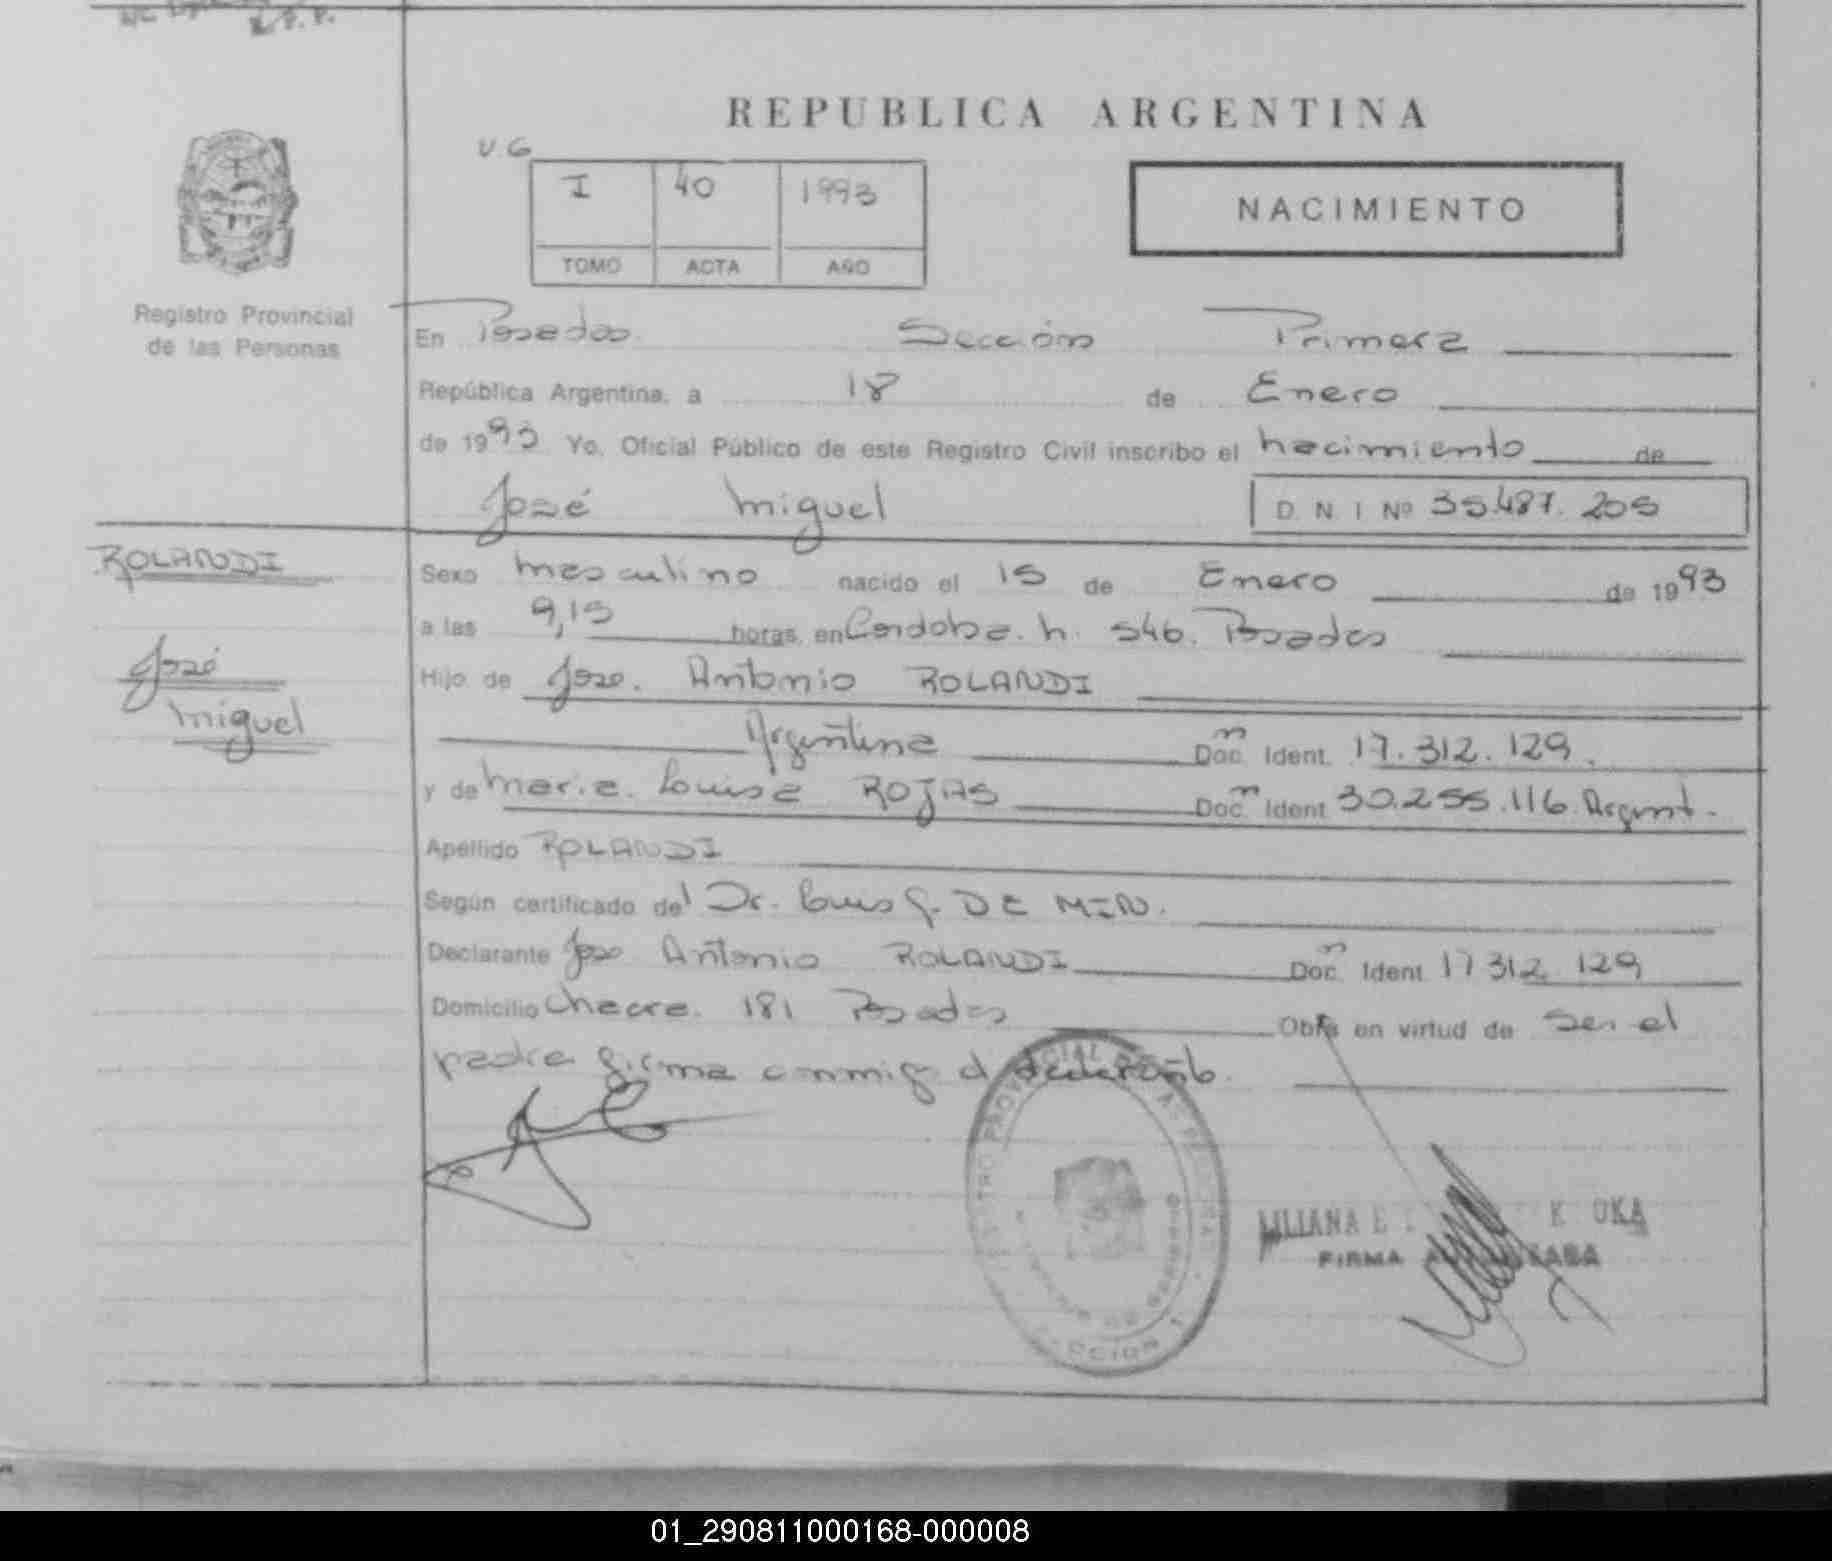 REPUBLICA ARGENTINA
V.G
I 40 1993
TOMO ACTA AÑO
NACIMIENTO
Registro Provincial
de las Personas
En Posadas. Sección Primera
República Argentina, a 18 de Enero
de 1993 Yo, Oficial Público de este Registro Civil inscribo el nacimiento de
José Miguel D. N. I Nº 35.487.205
ROLANDI
José
Miguel
Sexo masculino nacido el 15 de Enero de 1993
a las 9,15 horas, en Cordoba. n. 546. Posadas
Hijo de Jose. Antonio ROLANDI
Argentina Doc. Ident. 17.312.129.
y de Maria. Louisa ROJAS Doc. Ident. 30.255.116. Argent.
Apellido ROLANDI
Según certificado del Dr. Luis G. DE MIN.
Declarante Jose Antonio ROLANDI Doc. Ident. 17 312 129
Domicilio Chacra. 181 Posadas Obra en virtud de ser el
padre firma conmigo el declarante.
LILIANA E K OKA
FIRMA
SECCION 1
01_290811000168-000008